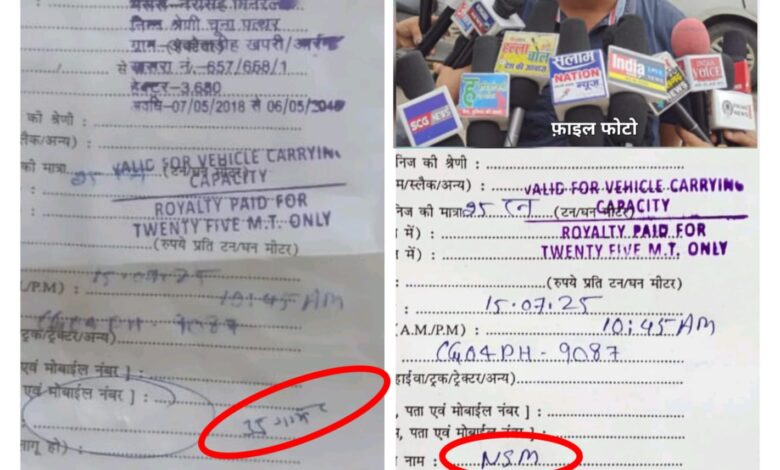 मेसर्स-नरसिंह मिनरल
जिला श्रेणी चूना पत्थर
खसरा नं.-657/658/1
हेक्टर-3.680
अवधि-07/05/2018 से 06/05/2048
की श्रेणी :
की मात्रा
VALID FOR VEHICLE CARRYING
CAPACITY
(टन/घन मीटर)
ROYALTY PAID FOR
TWENTY FIVE M.T. ONLY
(रुपये प्रति टन/घन मीटर)
15.07.25
/P.M) :
10:45 AM
CG04PH-9087
ट्रक/ट्रेक्टर/अन्य)
एवं मोबाईल नंबर ] :
एवं मोबाईल नंबर ] :
लागू हो) :
SCG NEWS
हल्ला बोल
सलाम
NATION
न्यूज
India
NEWS
INDIA
VOICE
PRIME NEWS
फ़ाइल फोटो
निज की श्रेणी :
म/स्लैक/अन्य) :
VALID FOR VEHICLE CARRYING
निज की मात्रा 25 टन (टन/घन मीटर)
CAPACITY
में) :
ROYALTY PAID FOR
में) :
TWENTY FIVE M.T. ONLY
(रुपये प्रति टन/घन मीटर)
: 15.07.25
(A.M./P.M) : 10:45 AM
CG04PH-9087
हाईवा/ट्रक/ट्रेक्टर/अन्य)
, पता एवं मोबाईल नंबर ] :
म, पता एवं मोबाईल नंबर ] :
नाम : N.S.M